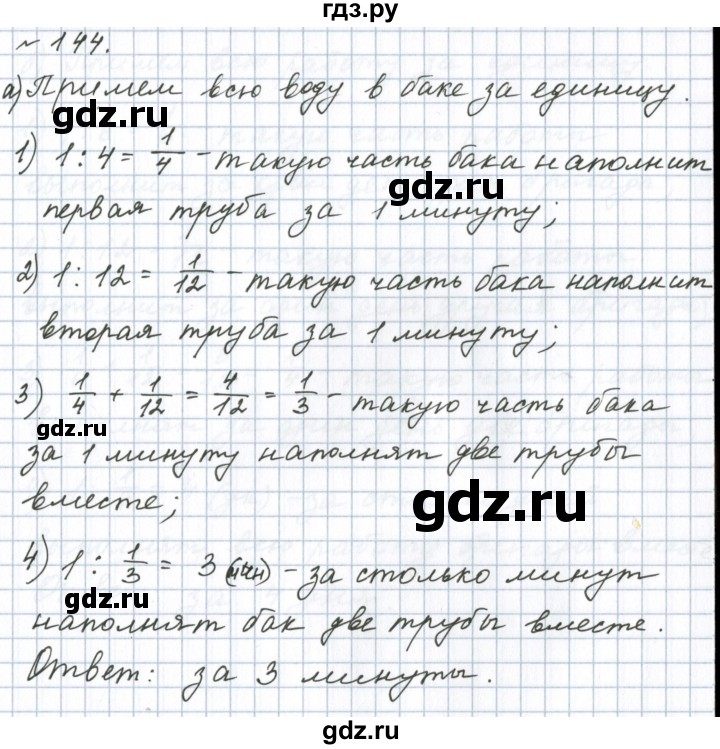 гдз.ру
№ 144.
а) Примем всю воду в баке за единицу.
gdz.ru
1) 1 : 4 = 1/4 - такую часть бака наполнит
gdz.ru
первая труба за 1 минуту;
2) 1 : 12 = 1/12 - такую часть бака наполнит
вторая труба за 1 минуту;
gdz.ru
3) 1/4 + 1/12 = 4/12 = 1/3 - такую часть бака
gdz.ru
за 1 минуту наполнят две трубы
вместе;
gdz.ru
4) 1 : 1/3 = 3 (мин) - за столько минут
gdz.ru
наполнят бак две трубы вместе.
Ответ: за 3 минуты.
gdz.ru
gdz.ru